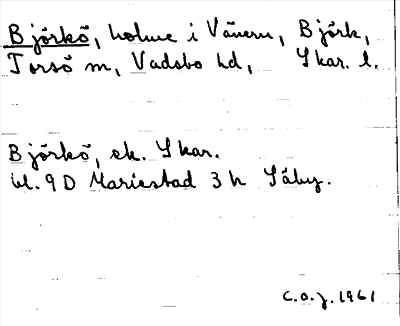 Björkö, holme i Vänern, Björk,
Torsö m, Vadsbo hd, Skar. l.
Björkö, ek. Skar.
bl. 9D Mariestad 3 h Säby.
C.O.J. 1961